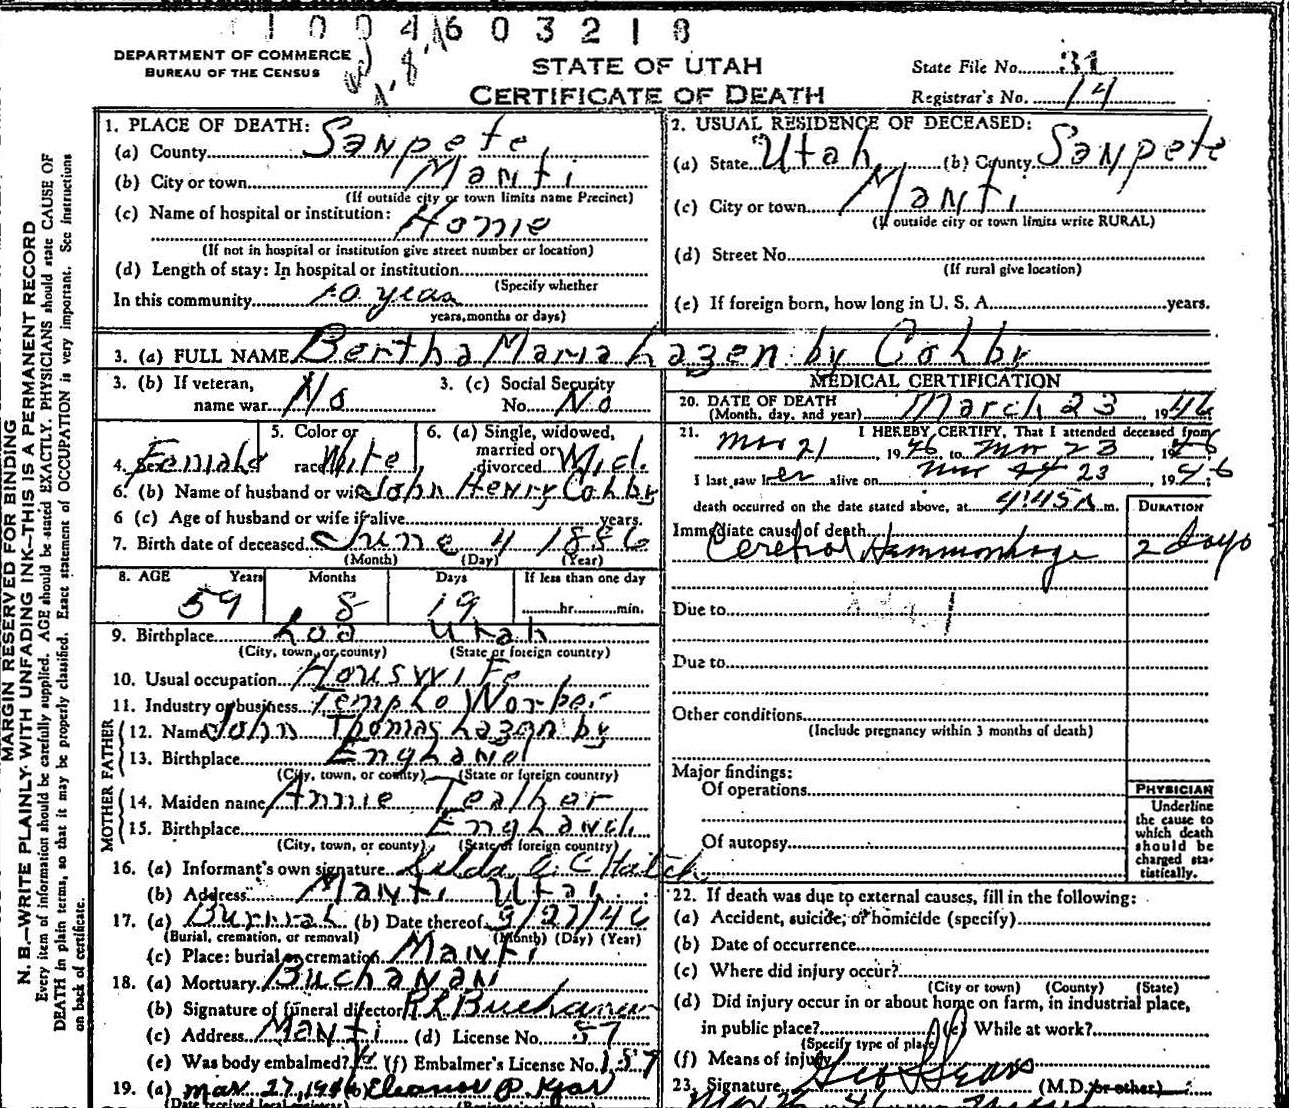 1004603218
DEPARTMENT OF COMMERCE
BUREAU OF THE CENSUS
STATE OF UTAH
CERTIFICATE OF DEATH
State File No. 31
Registrar's No. 14
MARGIN RESERVED FOR BINDING
N. B.—WRITE PLAINLY WITH UNFADING INK—THIS IS A PERMANENT RECORD
Every item of information should be carefully supplied. AGE should be stated EXACTLY. PHYSICIANS should state CAUSE OF
DEATH in plain terms, so that it may be properly classified. Exact statement of OCCUPATION is very important. See instructions
on back of certificate.
1. PLACE OF DEATH:
(a) County Sanpete
(b) City or town Manti
(If outside city or town limits name Precinct)
(c) Name of hospital or institution:
Home
(If not in hospital or institution give street number or location)
(d) Length of stay: In hospital or institution
(Specify whether
In this community 10 years
years, months or days)
2. USUAL RESIDENCE OF DECEASED:
(a) State Utah (b) County Sanpete
(c) City or town Manti
(If outside city or town limits write RURAL)
(d) Street No.
(If rural give location)
(e) If foreign born, how long in U. S. A. years.
3. (a) FULL NAME Bertha Maria Lazenby Colby
3. (b) If veteran,
name war No
3. (c) Social Security
No. No
4. Sex Female
5. Color or
race White
6. (a) Single, widowed,
married or
divorced Wid.
6. (b) Name of husband or wife John Henry Colby
6 (c) Age of husband or wife if alive years.
7. Birth date of deceased June 4 1886
(Month) (Day) (Year)
8. AGE Years Months Days If less than one day
59 8 19 hr. min.
9. Birthplace Loa Utah
(City, town, or county) (State or foreign country)
10. Usual occupation Houswife
11. Industry or business Temple Worker
FATHER
12. Name John Thomas Lazenby
13. Birthplace England
(City, town, or county) (State or foreign country)
MOTHER
14. Maiden name Annie
15. Birthplace England
(City, town, or county) (State or foreign country)
16. (a) Informant's own signature
(b) Address Manti Utah
17. (a) Burrial (b) Date thereof 3/27/46
(Burial, cremation, or removal) (Month) (Day) (Year)
(c) Place: burial or cremation Manti
18. (a) Mortuary Buchanan
(b) Signature of funeral director Buchanan
(c) Address Manti (d) License No. 87
(e) Was body embalmed? (f) Embalmer's License No. 157
19. (a) Mar. 27, 1946 (b) Eleanor P. Kjar
(Date received local registrar)
MEDICAL CERTIFICATION
20. DATE OF DEATH
(Month, day, and year) March 23, 1946
21. I HEREBY CERTIFY, That I attended deceased from
Mar 21, 1946 to Mar 23, 1946
I last saw her alive on Mar 23, 1946;
death occurred on the date stated above, at 4:45 A m.
DURATION
Immediate cause of death
Cerebral Hammorrhage 2 days
Due to
Due to
Other conditions
(Include pregnancy within 3 months of death)
Major findings:
Of operations
Of autopsy
PHYSICIAN
Underline
the cause to
which death
should be
charged sta-
tistically.
22. If death was due to external causes, fill in the following:
(a) Accident, suicide, or homicide (specify)
(b) Date of occurrence
(c) Where did injury occur?
(City or town) (County) (State)
(d) Did injury occur in or about home on farm, in industrial place,
in public place? (e) While at work?
(Specify type of place)
(f) Means of injury
23. Signature (M.D. or other)